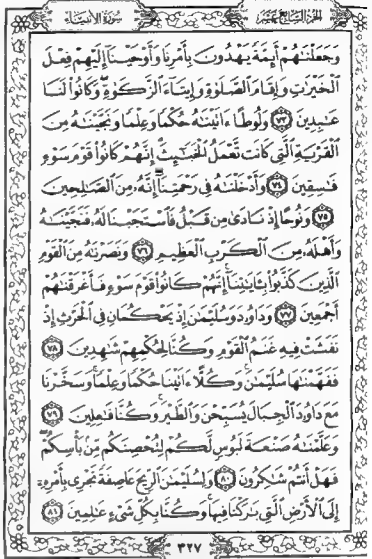 الجزء السابع عشر سورة الأنبياء
وَجَعَلْنَٰهُمْ أَئِمَّةً يَهْدُونَ بِأَمْرِنَا وَأَوْحَيْنَآ إِلَيْهِمْ فِعْلَ
ٱلْخَيْرَٰتِ وَإِقَامَ ٱلصَّلَوٰةِ وَإِيتَآءَ ٱلزَّكَوٰةِ وَكَانُوا۟ لَنَا
عَٰبِدِينَ ٧٣ وَلُوطًا ءَاتَيْنَٰهُ حُكْمًا وَعِلْمًا وَنَجَّيْنَٰهُ مِنَ
ٱلْقَرْيَةِ ٱلَّتِى كَانَت تَّعْمَلُ ٱلْخَبَٰٓئِثَ إِنَّهُمْ كَانُوا۟ قَوْمَ سَوْءٍ
فَٰسِقِينَ ٧٤ وَأَدْخَلْنَٰهُ فِى رَحْمَتِنَآ إِنَّهُۥ مِنَ ٱلصَّٰلِحِينَ
٧٥ وَنُوحًا إِذْ نَادَىٰ مِن قَبْلُ فَٱسْتَجَبْنَا لَهُۥ فَنَجَّيْنَٰهُ
وَأَهْلَهُۥ مِنَ ٱلْكَرْبِ ٱلْعَظِيمِ ٧٦ وَنَصَرْنَٰهُ مِنَ ٱلْقَوْمِ
ٱلَّذِينَ كَذَّبُوا۟ بِـَٔايَٰتِنَآ إِنَّهُمْ كَانُوا۟ قَوْمَ سَوْءٍ فَأَغْرَقْنَٰهُمْ
أَجْمَعِينَ ٧٧ وَدَاوُۥدَ وَسُلَيْمَٰنَ إِذْ يَحْكُمَانِ فِى ٱلْحَرْثِ إِذْ
نَفَشَتْ فِيهِ غَنَمُ ٱلْقَوْمِ وَكُنَّا لِحُكْمِهِمْ شَٰهِدِينَ ٧٨
فَفَهَّمْنَٰهَا سُلَيْمَٰنَ وَكُلًّا ءَاتَيْنَا حُكْمًا وَعِلْمًا وَسَخَّرْنَا
مَعَ دَاوُۥدَ ٱلْجِبَالَ يُسَبِّحْنَ وَٱلطَّيْرَ وَكُنَّا فَٰعِلِينَ ٧٩
وَعَلَّمْنَٰهُ صَنْعَةَ لَبُوسٍ لَّكُمْ لِتُحْصِنَكُم مِّنۢ بَأْسِكُمْ
فَهَلْ أَنتُمْ شَٰكِرُونَ ٨٠ وَلِسُلَيْمَٰنَ ٱلرِّيحَ عَاصِفَةً تَجْرِى بِأَمْرِهِۦٓ
إِلَى ٱلْأَرْضِ ٱلَّتِى بَٰرَكْنَا فِيهَا وَكُنَّا بِكُلِّ شَىْءٍ عَٰلِمِينَ ٨١
٣٢٧